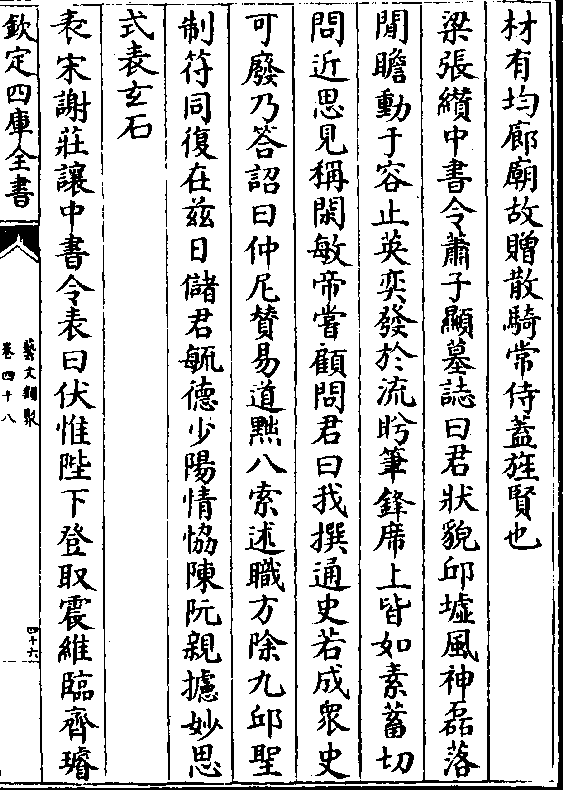 材有均廊廟故贈散騎常侍蓋旌賢也
梁張纘中書令蕭子顯墓誌曰君狀貌邱墟風神磊落
聞瞻動于容止英奕發於流盻筆鋒席上皆如素蓄切
問近思見稱閑敏帝嘗顧問君曰我撰通史若成衆史
可廢乃答詔曰仲尼賛易道黜八索述職方除九邱聖
制符同復在兹日儲君毓德少陽情恊陳阮親攄妙思
式表玄石
表宋謝莊讓中書令表曰伏惟陛下登取震維臨齊璿
欽定四庫全書
藝文類聚
卷四十八
四十六